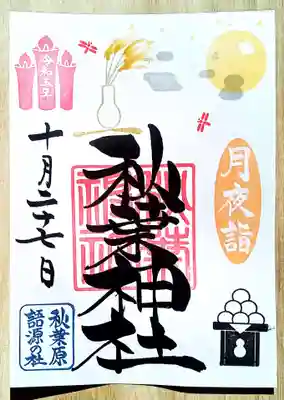 月夜詣
秋葉神社
十月二十七日
秋葉原
語源の社